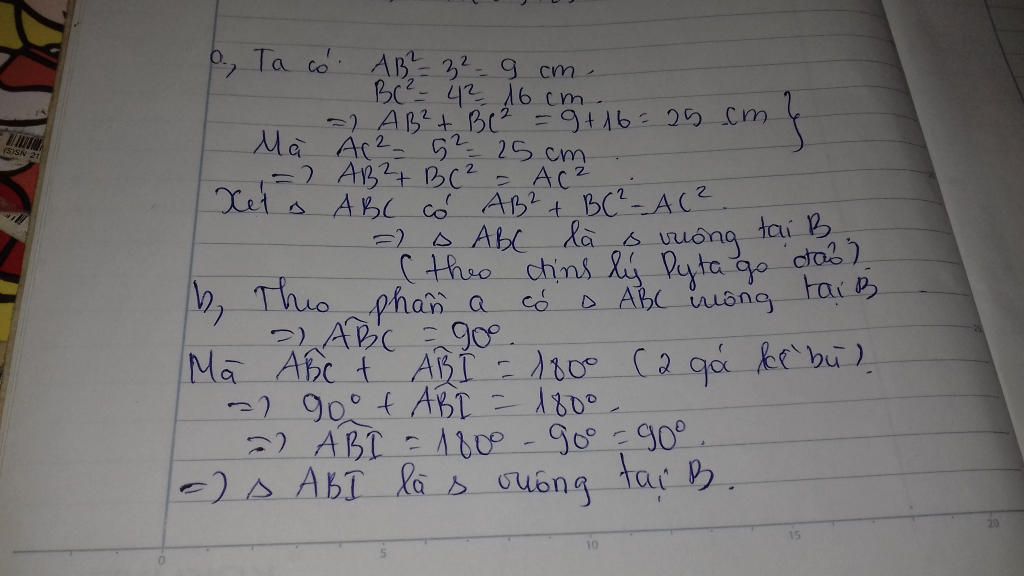 a, Ta có: AB² = 3² = 9 cm.
BC² = 4² = 16 cm.
=> AB² + BC² = 9+16 = 25 cm }
Mà AC² = 5² = 25 cm
=> AB² + BC² = AC².
Xét Δ ABC có AB² + BC² = AC².
=> Δ ABC là Δ vuông tại B
(theo định lý Pytago đảo).
b, Theo phần a có Δ ABC vuông tại B
=> \widehat{ABC} = 90°.
Mà \widehat{ABC} + \widehat{ABI} = 180° (2 góc kề bù).
=> 90° + \widehat{ABI} = 180°.
=> \widehat{ABI} = 180° - 90° = 90°.
=> Δ ABI là Δ vuông tại B.
0 5 10 15 20